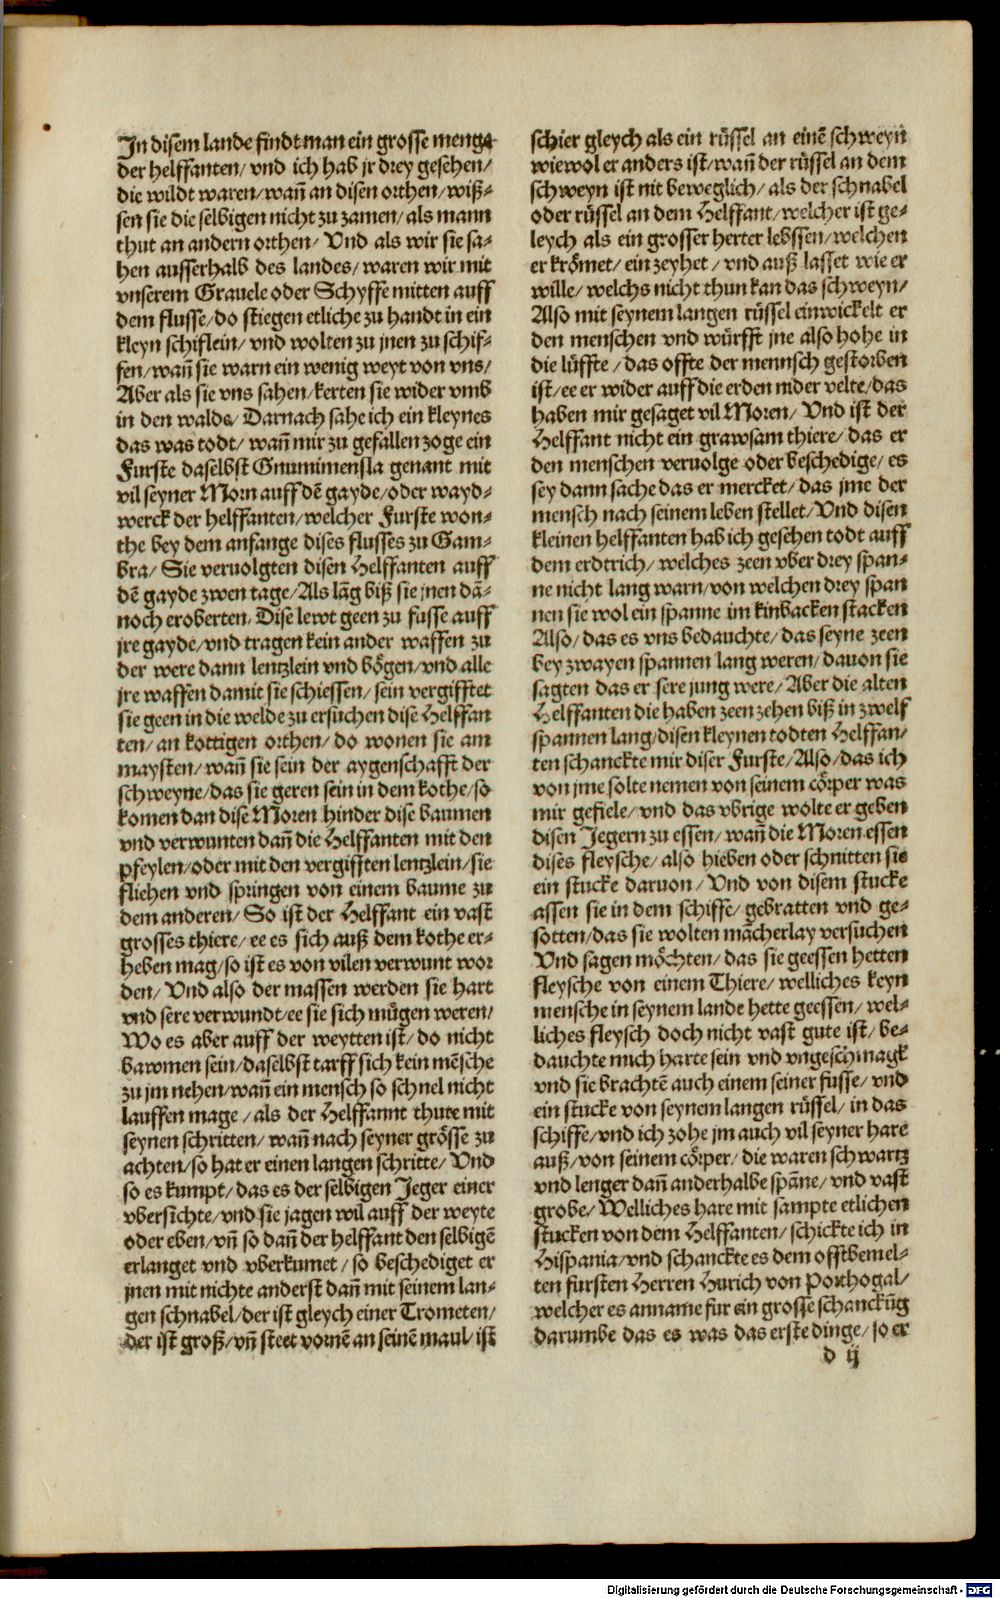 In disem lande findt man ein grosse menge
der helffanten/ vnd ich hab jr drey gesehen/
die wildt waren/ wañ an disen orthen/ wiß⸗
sen sie die selbigen nicht zu zamen/ als mann
thut an andern orthen/ Vnd als wir sie sa⸗
hen ausserhalb des landes/ waren wir mit
vnserem Grauele oder Schyffe mitten auff
dem flusse/ do stiegen etliche zu handt in ein
kleyn schiflein/ vnd wolten zu jnen zu schif⸗
fen/ wañ sie warn ein wenig weyt von vns/
Aber als sie vns sahen/ kerten sie wider vmb
in den walde/ Darnach sahe ich ein kleynes
das was todt/ wañ mir zu gefallen zoge ein
Furste daselbst Gnumimensla genant mit
vil seyner Morn auff dē gayde/ oder wayd⸗
werck der helffanten/ welcher Furste won⸗
the bey dem anfange dises flusses zu Gam⸗
bra/ Sie veruolgten disen Helffanten auff
dē gayde zwen tage/ Als lāg biß sie jnen dā⸗
noch eroberten/ Dise lewt geen zu fusse auff
jre gayde/ vnd tragen kein ander waffen zu
der were dann lentzlein vnd bögen/ vnd alle
jre waffen damit sie schiessen/ sein vergifftet
sie geen in die welde zu ersuchen dise Helffan
ten/ an kottigen orthen/ do wonen sie am
maysten/ wañ sie sein der aygenschafft der
schweyne/ das sie geren sein in dem kothe/ so
komen dan dise Moren hinder dise baumen
vnd verwunten dañ die Helffanten mit den
pfeylen/ oder mit den vergifften lentzlein/ sie
fliehen vnd springen von einem baume zu
dem anderen/ So ist der Helffant ein vast
grosses thiere/ ee es sich auß dem kothe er⸗
heben mag/ so ist es von vilen verwunt wor
den/ Vnd also der massen werden sie hart
vnd sere verwundt/ ee sie sich mügen weren/
Wo es aber auff der weytten ist/ do nicht
bawmen sein/ daselbst tarff sich kein mēsche
zu jm nehen/ wañ ein mensch so schnel nicht
lauffen mage/ als der Helffannt thut mit
seynen schritten/ wañ nach seyner grösse zu
achten/ so hat er einen langen schritte/ Vnd
so es kumpt/ das es der selbigen Jeger einer
vbersichte/ vnd sie jagen wil auff der weyte
oder eben/ vñ so dañ der helffant den selbigē
erlanget vnd vberkumet/ so beschediget er
jnen mit nichte anderst dañ mit seinem lan⸗
gen schnabel/ der ist gleych einer Trometen/
der ist groß/ vñ steet vornē an seinē maul/ ist
schier gleych als ein rüssel an einē schweyn
wiewol er anders ist/ wañ der rüssel an dem
schweyn ist nit beweglich/ als der schnabel
oder rüssel an dem Helffant/ welcher ist ge⸗
leych als ein grosser herter lebssen/ welchen
er krömet/ ein zeyhet/ vnd auß lasset wie er
wille/ welchs nicht thun kan das schweyn/
Also mit seynem langen rüssel einwickelt er
den menschen vnd würfft jne also hohe in
die lüffte/ das offte der mennsch gestorben
ist/ ee er wider auff die erden nider velte/ das
haben mir gesaget vil Moren/ Vnd ist der
Helffant nicht ein grawsam thiere/ das er
den menschen veruolge oder beschedige/ es
sey dann sache das er mercket/ das jme der
mensch nach seinem leben stellet/ Vnd disen
kleinen helffanten hab ich gesehen todt auff
dem erdtrich/ welches zeen vber drey span⸗
ne nicht lang warn/ von welchen drey span
nen sie wol ein spanne im kinbacken stacken
Also/ das es vns bedauchte/ das seyne zeen
bey zwayen spannen lang weren/ dauon sie
sagten das er sere jung were/ Aber die alten
Helffanten die haben zeen zehen biß in zwelf
spannen lang/ disen kleynen todten Helffan/
ten schanckte mir diser Furste/ Also/ das ich
von jme solte nemen von seinem cörper was
mir gefiele/ vnd das vbrige wolte er geben
disen Jegern zu essen/ wañ die Moren essen
dises fleysche/ also hieben oder schnitten sie
ein stucke daruon/ Vnd von disem stucke
assen sie in dem schiffe/ gebratten vnd ge⸗
sotten/ das sie wolten mācherlay versuchen
Vnd sagen möchten/ das sie geessen hetten
fleysche von einem Thiere/ welliches keyn
mensche in seynem lande hette geessen/ wel⸗
liches fleysch doch nicht vast gute ist/ be⸗
dauchte mich harte sein vnd vngeschmagk
vnd sie brachtē auch einem seiner fusse/ vnd
ein stucke von seynem langen rüssel/ in das
schiffe/ vnd ich zohe jm auch vil seyner hare
auß/ von seinem cörper/ die waren schwartz
vnd lenger dañ anderhalbe spāne/ vnd vast
grobe/ Welliches hare mit sampte etlichen
stucken von dem Helffanten/ schickte ich in
Hispania/ vnd schanckte es dem offtbemel⸗
ten fursten Herren Hurich von Porthogal/
welcher es anname für ein grosse schanckūg
darumbe das es was das erste dinge/ so er
d ij
Digitalisierung gefördert durch die Deutsche Forschungsgemeinschaft - DFG